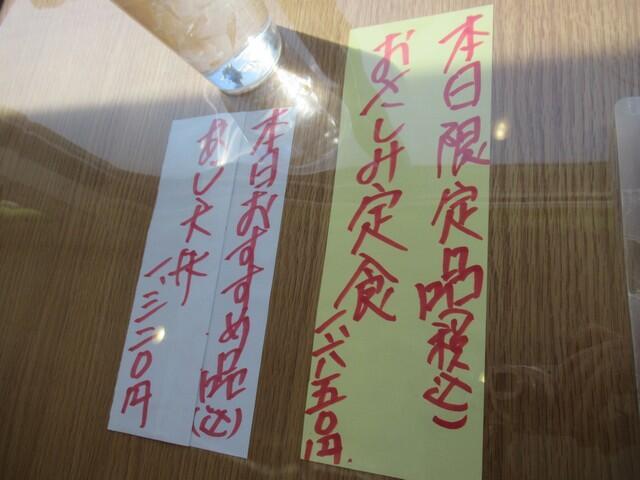 本日限定品(税込)
おたのしみ定食
一、六五〇円
本日おすすめ品(込)
あじ天丼
一、三二〇円